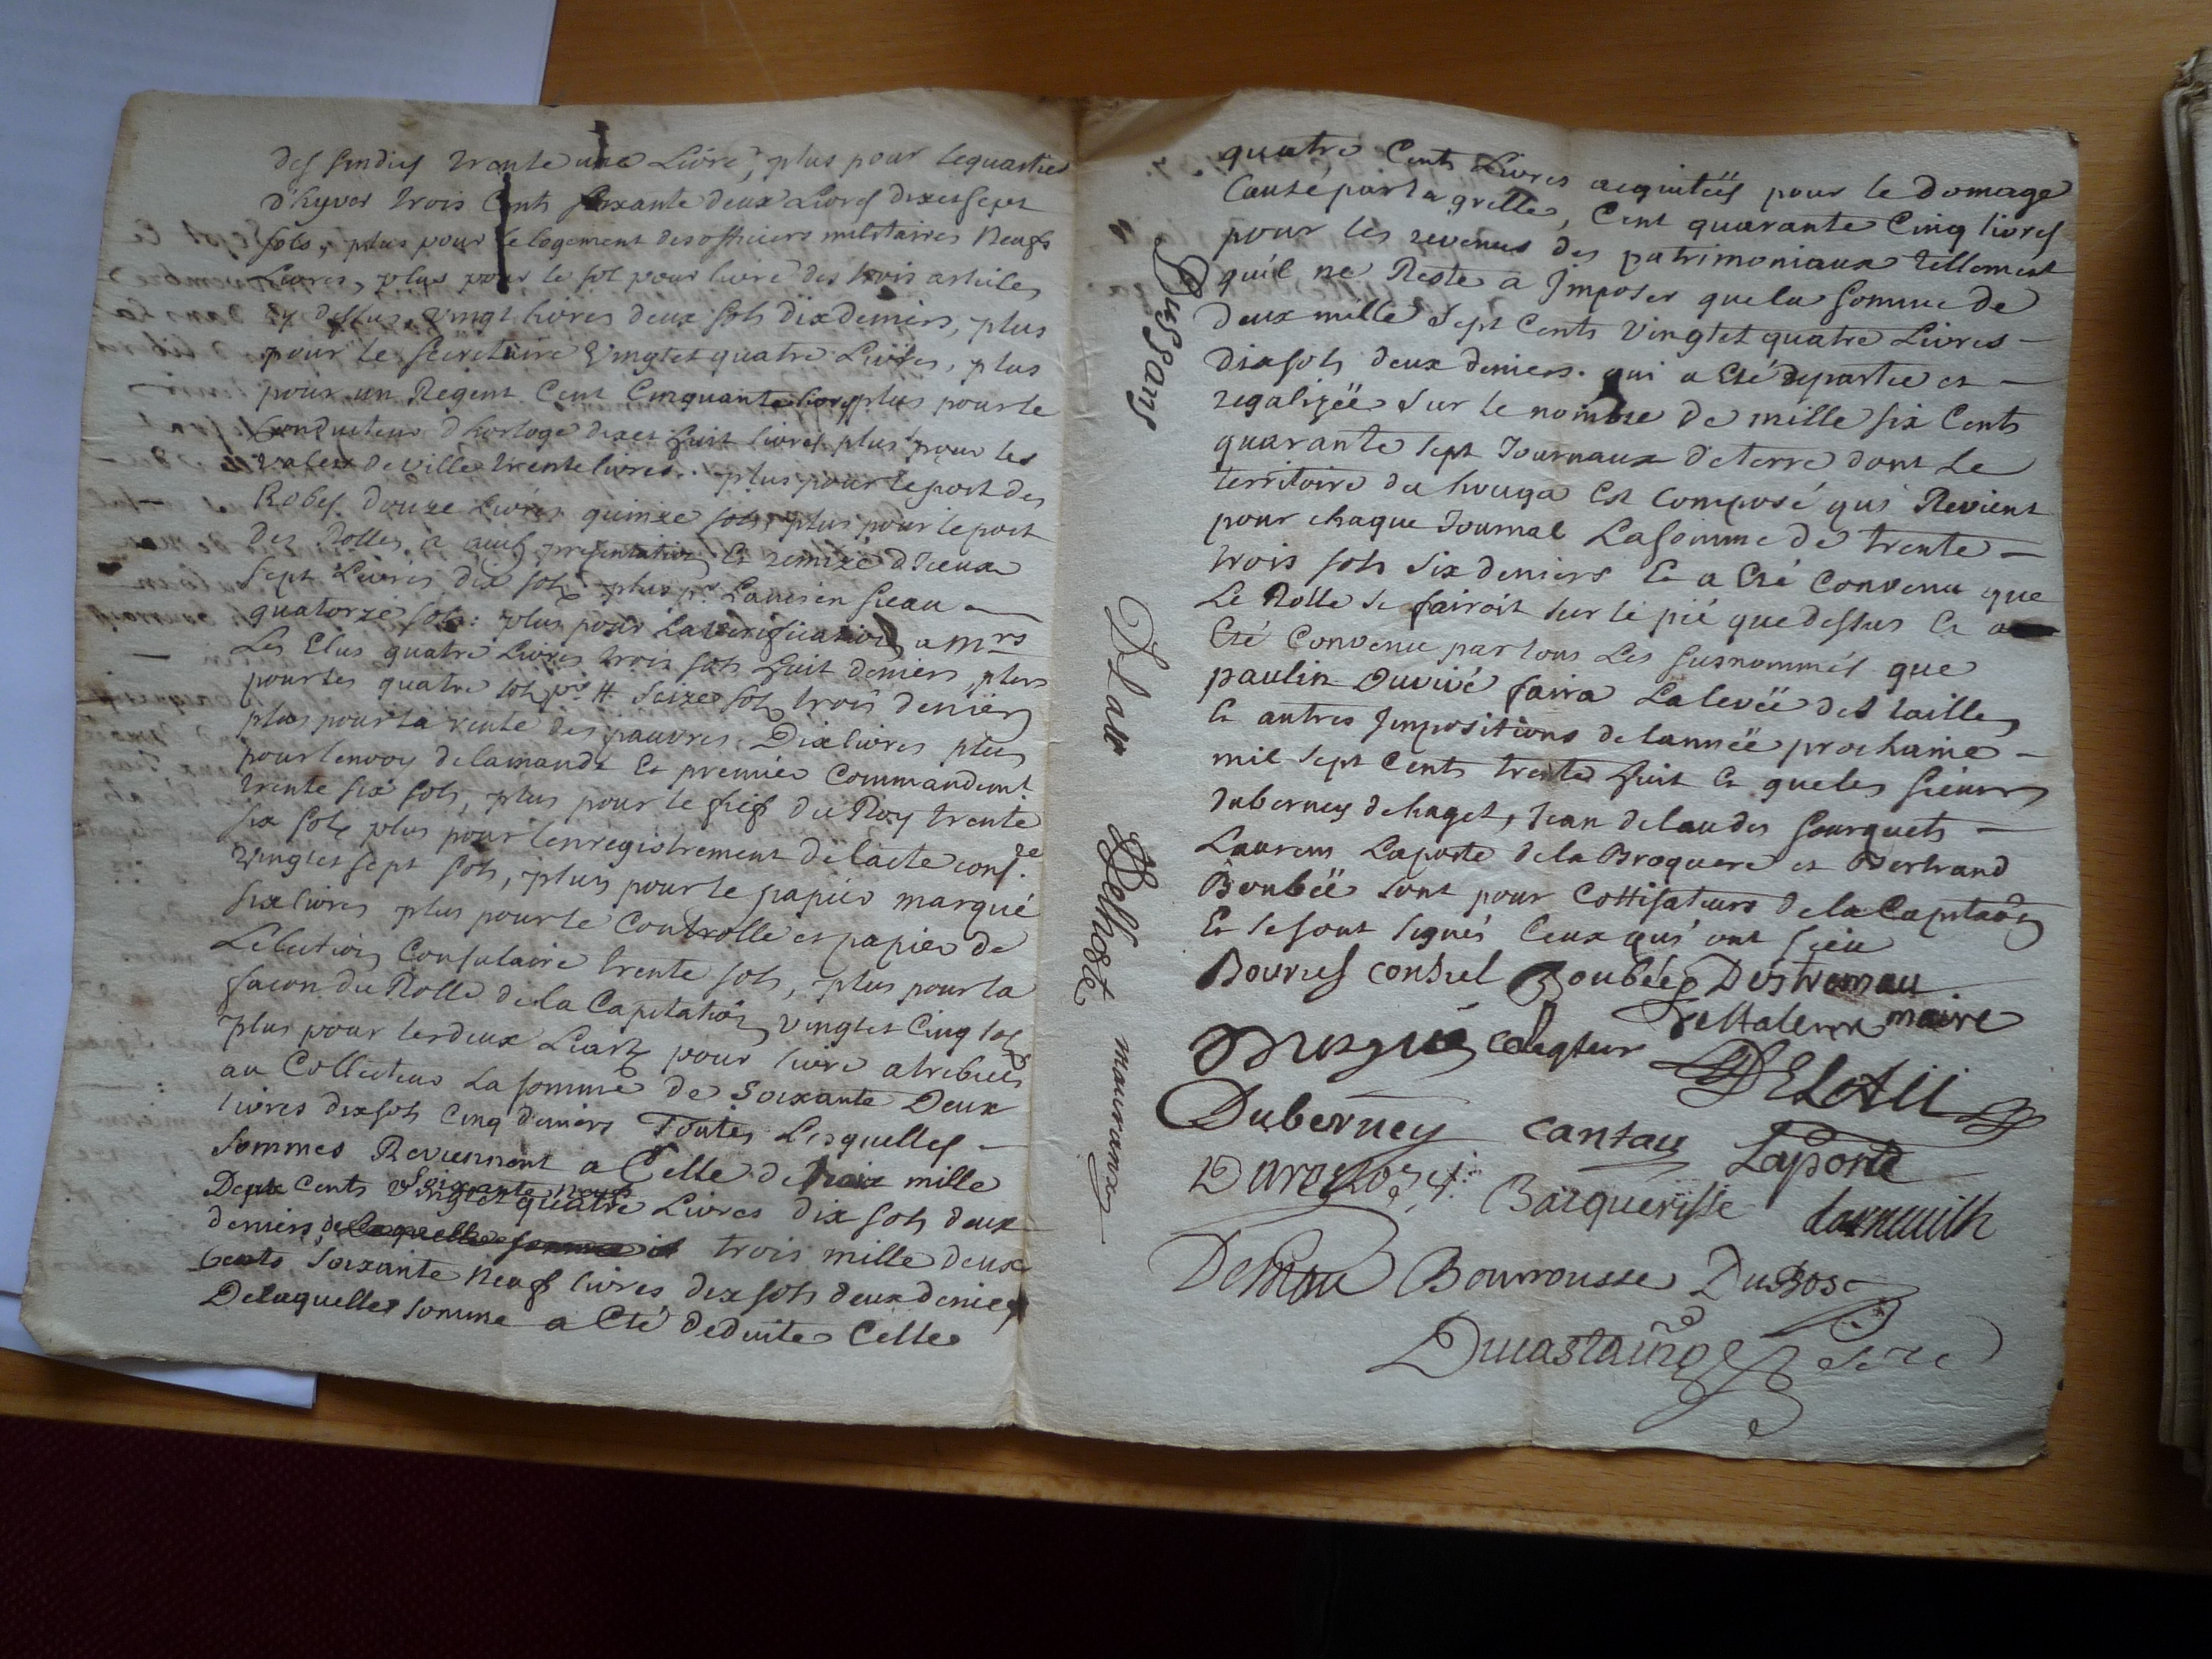 des sindics trente une Livre, plus pour le quartier
d'hyver trois Cents soixante deux Livres dix et sept
sols, plus pour le logement des officiers militaires Neufs
Livres, plus pour le sol pour livre des trois articles
cy dessus, vingt livres deux sols dix deniers, plus
pour le secretaire Vingt et quatre Livres, plus
pour un Regent Cent Cinquante livres plus pour le
Conducteur d horloge dix et huit livres plus pour les
valets de ville trente livres. plus pour le port des
Robes douze Livres quinze sols, plus pour le port
des Rolles a auch presentation et remise d'iceux
sept Livres dix sols plus pr. Lauis en sceau
quatorze sols: plus pour la verification a mrs
Les Elus quatre Livres trois sols huit deniers plus
pour les quatre sols pr. ₶ seize sols trois deniers
plus pour la rente des pauvres Dix livres plus
pour lenvoy de la mande et premier Commandemt
trente six sols, plus pour le fief du Roy trente
six sols plus pour lenregistrement de lacte consre
vingt et sept sols, plus pour le papier marqué
six livres plus pour le Controlle et papier de
Lelection Consulaire trente sols, plus pour la
facon du Rolle de la Capitation vingt et Cinq sols
plus pour les deux Liarts pour livre atribués
au Collecteur La somme de Soixante Deux
livres dix sols Cinq deniers Toutes Lesquelles -
Sommes Reviennent a Celle de trois mille
Deux Cents Soixante neuf Vingt et quatre Livres dix sols deux
deniers, de laquelle somme il trois mille deux
Cents soixante Neuf livres dix sols deux deniers
De laquelle somme a Eté deduite Celle
Dussans
Delhoste
mauranx
quatre Cents Livres acquitées pour le domage
Causé par la grelle, Cent quarante Cinq livres
pour les revenus des patrimoniaux tellement
qu'il ne Reste a Jmposer que la somme de
deux mille Sept Cents Vingt et quatre Livres -
dix sols deux deniers. qui a Eté departie et -
regalizée sur le nombre de mille six Cents
quarante sept Journaux de terre dont Le
territoire du houga Est Composé qui Revient
pour chaque Journal La somme de trente -
trois sols six deniers Et a Eté Convenu que
Le Rolle se fairoit sur le pié que dessus Et a
Eté Convenu par tous Les susnommés que
paulin Duvivé faira La levée des tailles
Et autres Jmpositions de lannée prochaine -
mil sept Cents trente huit Et que les sieurs
duberney de haget, Jean de laudes Sourquets -
Laurens Laporte de la Broquere et Bertrand
Boubée sont pour Cottisateurs de la Capitation
Et se sont signés Ceux qui ont sceu
Bovries consul Boubée Destremau
maire
colegteur DELAS
Duberney cantau Laporte
Barquerisse darmailh
Bourrousse DuBosc
Ducastaing